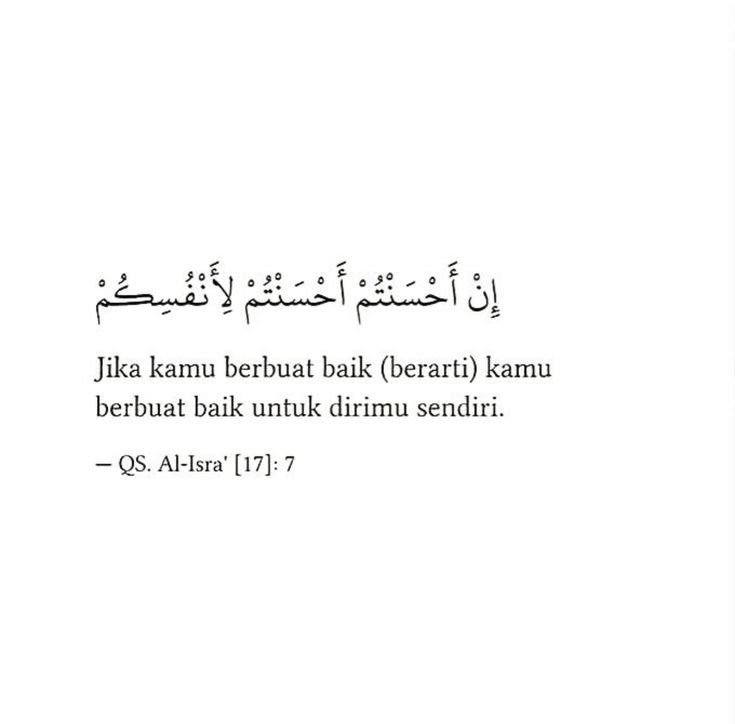 إِنْ أَحْسَنْتُمْ أَحْسَنْتُمْ لِأَنْفُسِكُمْ
Jika kamu berbuat baik (berarti) kamu
berbuat baik untuk dirimu sendiri.
— QS. Al-Isra' [17]: 7